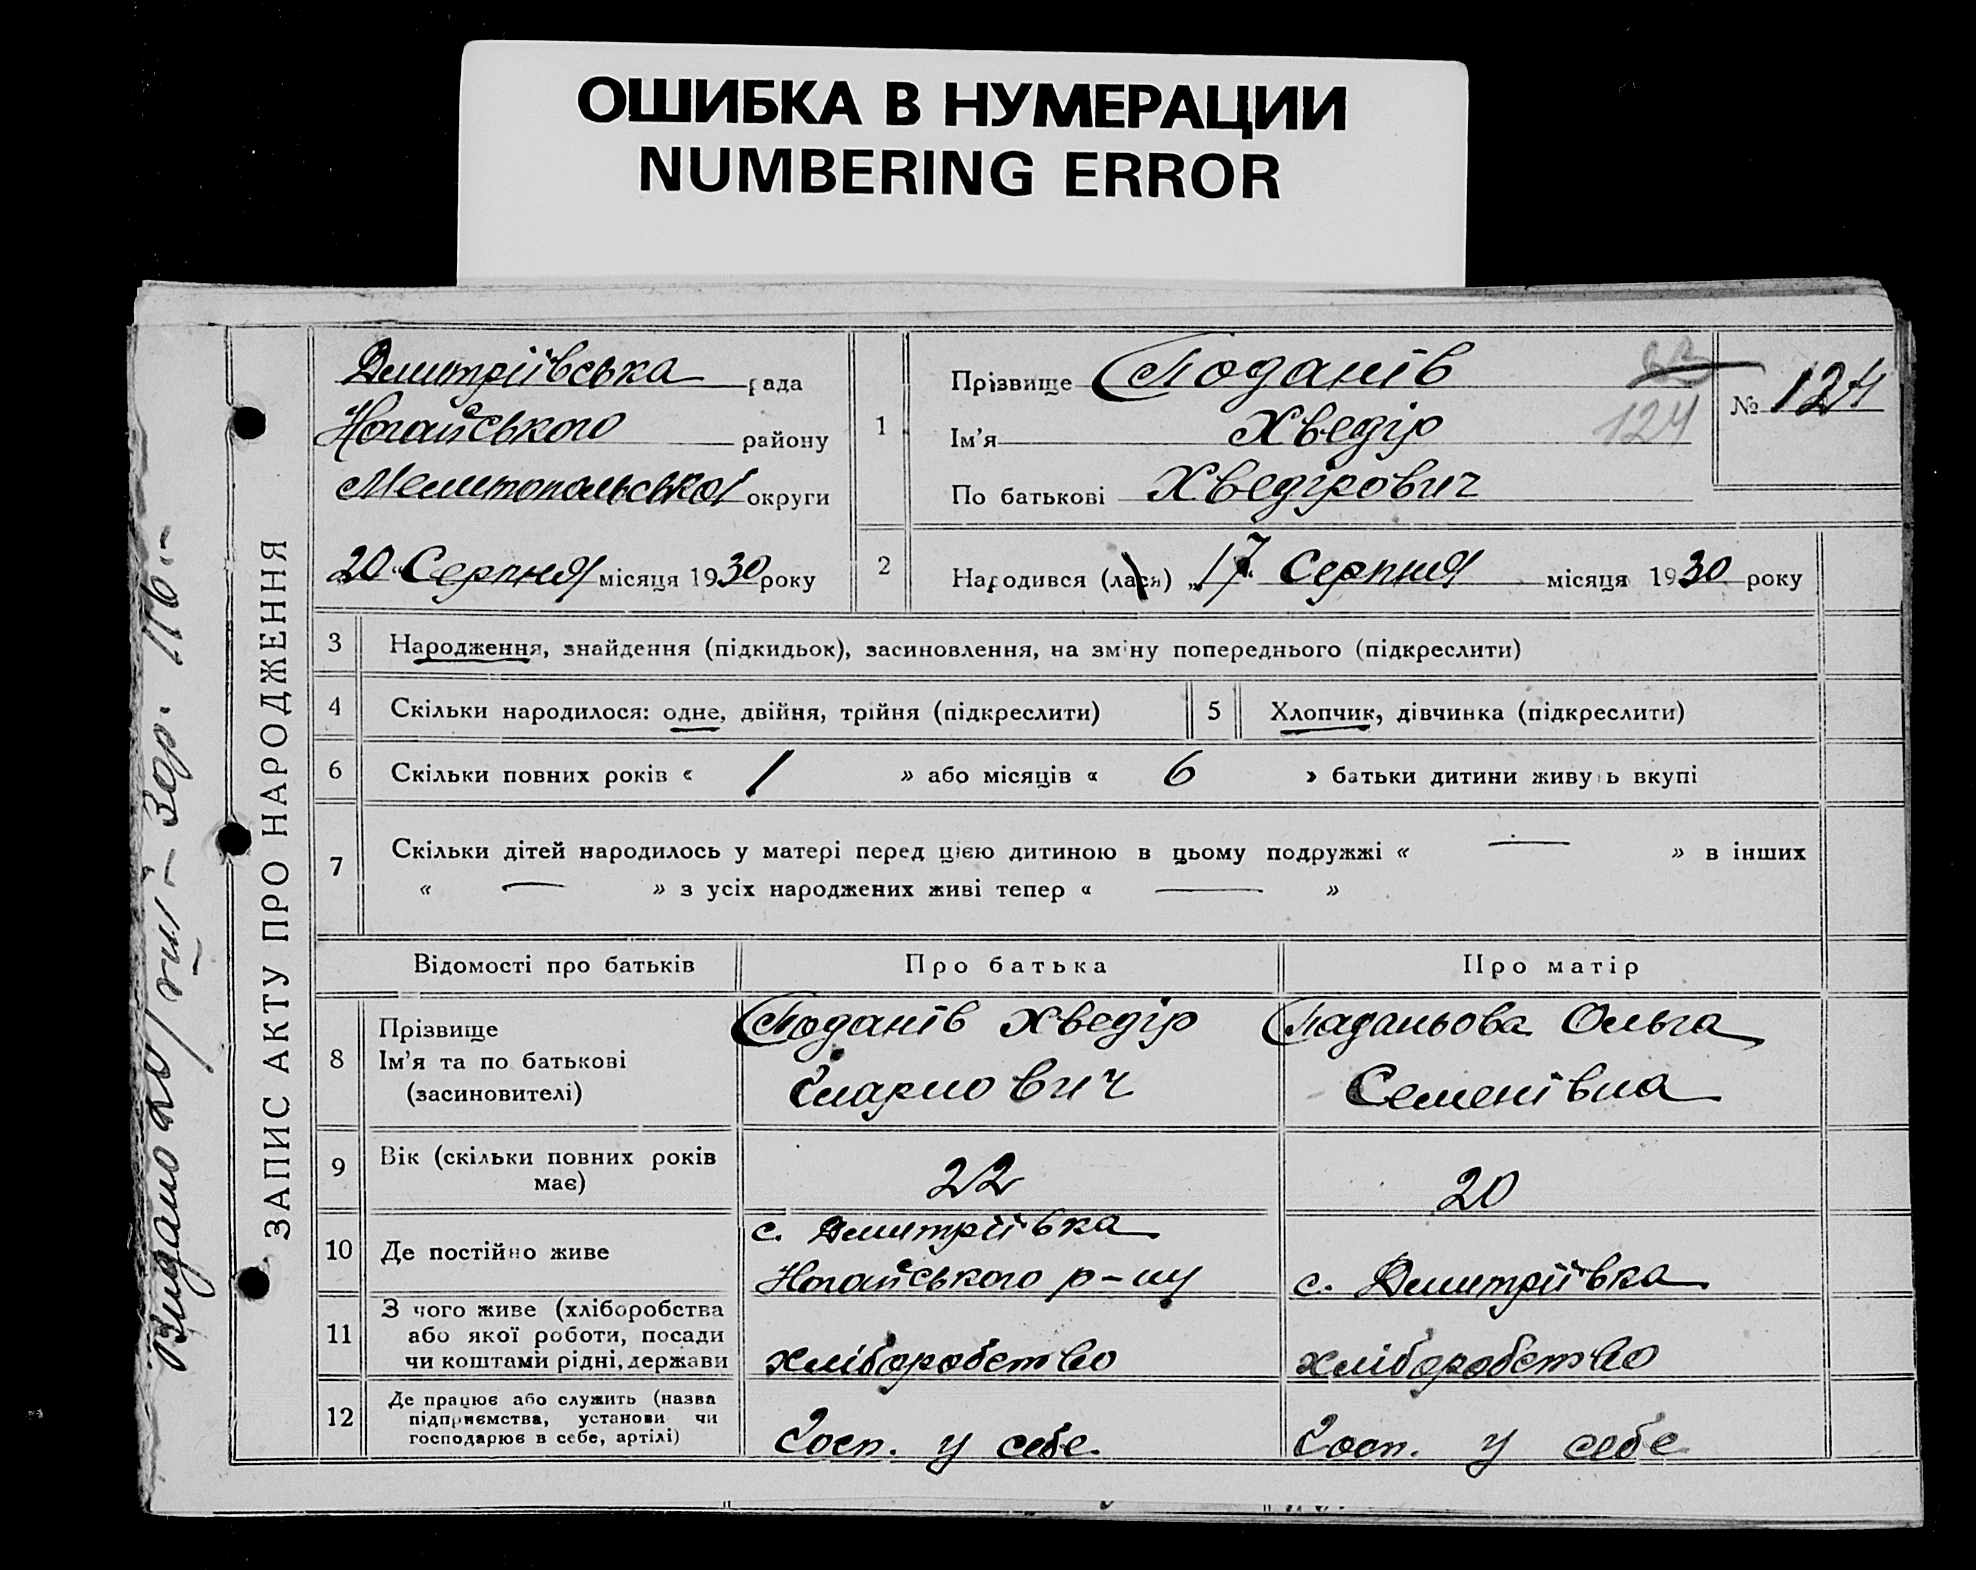 ОШИБКА В НУМЕРАЦИИ
NUMBERING ERROR
ЗАПИС АКТУ ПРО НАРОДЖЕННЯ
Видано
Дмитріївська рада
Ногайського району
Мелитопольської округи
20 Серпня місяця 1930 року
1
Прізвище Поданів
Ім'я Хведір
По батькові Хведірович
124
№ 124
2 Народився (лася) „17" Серпня місяця 1930 року
3 Народження, знайдення (підкидьок), засиновлення, на зміну попереднього (підкреслити)
4 Скільки народилося: одне, двійня, трійня (підкреслити) 5 Хлопчик, дівчинка (підкреслити)
6 Скільки повних років « 1 » або місяців « 6 » батьки дитини живуть вкупі
7 Скільки дітей народилось у матері перед цією дитиною в цьому подружжі « — » в інших
« — » з усіх народжених живі тепер « — »
Відомості про батьків Про батька Про матір
8 Прізвище
Ім'я та по батькові
(засновителі)
Поданів Хведір
Паданьова Ольга
Семенівна
9 Вік (скільки повних років
має) 22 20
10 Де постійно живе
с. Дмитріївка
Ногайського р-ну
с. Дмитріївка
11 З чого живе (хліборобства
або якої роботи, посади
чи коштами рідні, держави
хліборобство хліборобство
12 Де працює або служить (назва
підприємства, установи чи
господарює в себе, артілі)
Госп. у себе. Госп. у себе